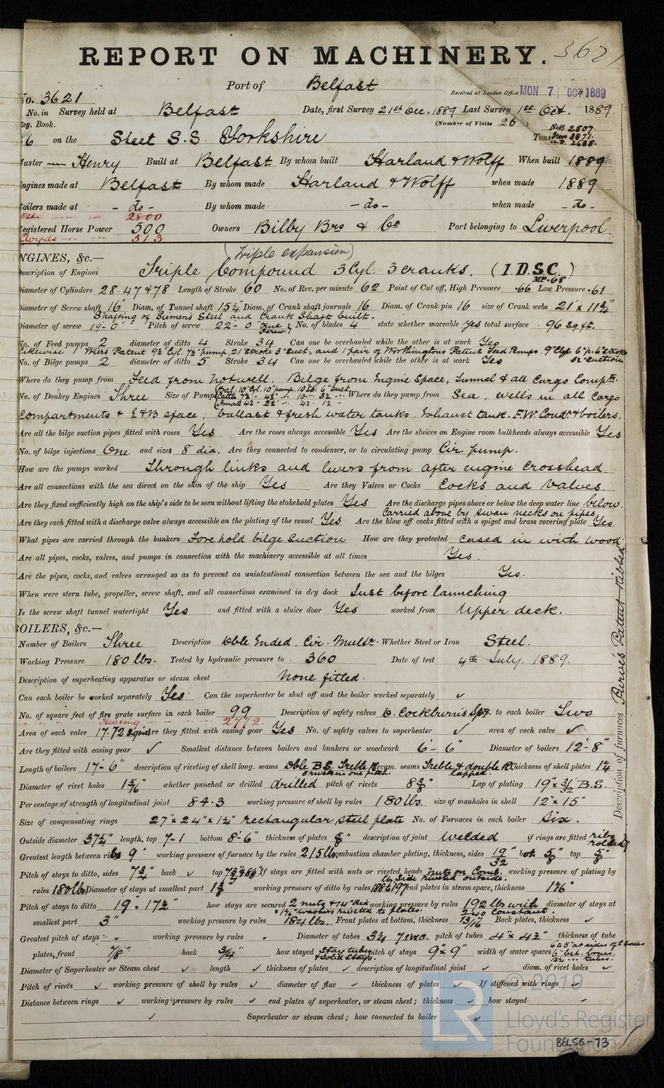 REPORT ON MACHINERY. 3621
Port of Belfast
Received at London Office MON 7 OCT 1889
No. 3621
No. in Survey held at Belfast Date, first Survey 21st Dec. 1889 Last Survey 1st Oct. 1889.
Reg. Book. (Number of Visits 26)
on the Steel S.S. Yorkshire Tons Nett 2507
Master Henry Built at Belfast By whom built Harland & Wolff When built 1889
Engines made at Belfast By whom made Harland & Wolff when made 1889
Boilers made at - do - By whom made - do - when made - do -
2800
Registered Horse Power 500 Owners Bilby Bros & Co Port belonging to Liverpool.
513
ENGINES, &c.— (Triple expansion)
Description of Engines Triple Compound 3 Cyl. 3 cranks. (I.D.S.C.)
Diameter of Cylinders 28. 47 & 78 Length of Stroke 60 No. of Rev. per minute 62 Point of Cut off, High Pressure .66 Low Pressure .61
Diameter of Screw shaft 16" Diam. of Tunnel shaft 15¼ Diam. of Crank shaft journals 16 Diam. of Crank pin 16 size of Crank webs 21" x 11½"
Diameter of screw 19-0" Pitch of screw 22-0 No. of blades 4 state whether moveable Yes total surface 96 sq ft.
No. of Feed pumps 2 diameter of ditto 4 Stroke 34 Can one be overhauled while the other is at work Yes
No. of Bilge pumps 2 diameter of ditto 5 Stroke 34 Can one be overhauled while the other is at work Yes
Where do they pump from Feed from hotwell. Bilge from Engine Space, Tunnel & all Cargo Compts.
No. of Donkey Engines Three Size of Pumps Where do they pump from Sea, wells in all Cargo
compartments & E&B space; ballast & fresh water tanks. Exhaust tank. F.W. Condr & boilers.
Are all the bilge suction pipes fitted with roses Yes Are the roses always accessible Yes Are the sluices on Engine room bulkheads always accessible Yes
No. of bilge injections One and sizes 8 dia. Are they connected to condenser, or to circulating pump Cir. pump.
How are the pumps worked Through links and levers from after engine crosshead.
Are all connections with the sea direct on the skin of the ship Yes Are they Valves or Cocks Cocks and valves.
Are they fixed sufficiently high on the ship's side to be seen without lifting the stokehold plates Yes Are the discharge pipes above or below the deep water line below
carried above by swan necks on pipes,
Are they each fitted with a discharge valve always accessible on the plating of the vessel Yes Are the blow off cocks fitted with a spigot and brass covering plate Yes
What pipes are carried through the bunkers Fore hold bilge suction How are they protected cased in with wood
Are all pipes, cocks, valves, and pumps in connection with the machinery accessible at all times Yes.
Are the pipes, cocks, and valves arranged so as to prevent an unintentional connection between the sea and the bilges Yes.
When were stern tube, propeller, screw shaft, and all connections examined in dry dock Just before launching
Is the screw shaft tunnel watertight Yes and fitted with a sluice door Yes worked from Upper deck.
BOILERS, &c.—
Number of Boilers Three Description Dble Ended. Cir. Multr. Whether Steel or Iron Steel.
Working Pressure 180 lbs. Tested by hydraulic pressure to 360 Date of test 4th July. 1889.
Description of superheating apparatus or steam chest None fitted.
Can each boiler be worked separately Yes Can the superheater be shut off and the boiler worked separately
No. of square feet of fire grate surface in each boiler 99 Description of safety valves to each boiler Two
Heating 2772
Area of each valve 17.72 Are they fitted with easing gear Yes No. of safety valves to superheater area of each valve
Are they fitted with easing gear Smallest distance between boilers and bunkers or woodwork 6-6" Diameter of boilers 12-8"
Length of boilers 17-6" description of riveting of shell long. seams circum. seams Treble & double R. lapped Thickness of shell plates
Diameter of rivet holes whether punched or drilled drilled pitch of rivets Lap of plating
Per centage of strength of longitudinal joint 84.3 working pressure of shell by rules 180 lbs. size of manholes in shell 12" x 15"
Size of compensating rings 27" x 24" x 1¼" rectangular steel plate No. of Furnaces in each boiler Six.
Outside diameter length, top 7-1 bottom 8-6" thickness of plates description of joint welded if rings are fitted ribs rolled
Greatest length between rings 9" working pressure of furnace by the rules 215 lbs combustion chamber plating, thickness, sides back top
Pitch of stays to ditto, sides back top If stays are fitted with nuts or riveted heads working pressure of plating by
rules 180 lbs Diameter of stays at smallest part working pressure of ditto by rules end plates in steam space, thickness
Pitch of stays to ditto 19" x 17½" how stays are secured working pressure by rules 192 lbs with diameter of stays at
240 Constant.
smallest part 3" working pressure by rules 184 lbs. Front plates at bottom, thickness 13/16 Back plates, thickness
Greatest pitch of stays working pressure by rules Diameter of tubes pitch of tubes thickness of tube
plates, front 7/8" back 3/4" how stayed stay tubes pitch of stays 9" x 9" width of water spaces
Diameter of Superheater or Steam chest length thickness of plates description of longitudinal joint diam. of rivet holes
Pitch of rivets working pressure of shell by rules diameter of flue thickness of plates If stiffened with rings
Distance between rings working pressure by rules end plates of superheater, or steam chest; thickness how stayed
Superheater or steam chest; how connected to boiler
Description of furnaces Purves's Patent Ribbed
© 2019
Lloyd's Register
Foundation
LR
BEL56-73